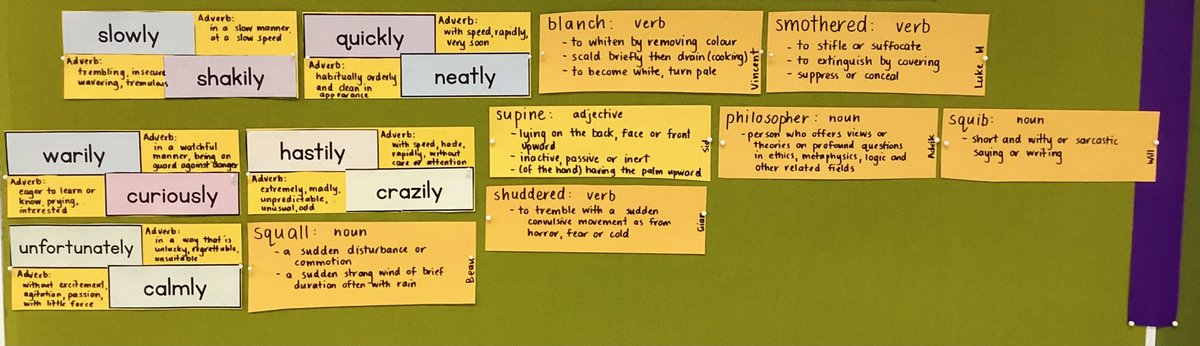 slowly
Adverb:
in a slow manner,
at a slow speed
Adverb:
trembling, insecure
wavering, tremulous
shakily
quickly
Adverb:
with speed, rapidly,
very soon
Adverb:
habitually orderly
and clean in
appearance
neatly
blanch: verb
- to whiten by removing colour
- scald briefly then drain (cooking)
- to become white, turn pale
Vincent
smothered: verb
- to stifle or suffocate
- to extinguish by covering
- suppress or conceal
Luke W
warily
Adverb:
in a watchful
manner, being on
guard against danger
Adverb:
eager to learn or
know, prying,
interested
curiously
hastily
Adverb:
with speed, haste,
rapidly, without
care or attention
Adverb:
extremely, madly,
unpredictable,
unusual, odd
crazily
supine: adjective
- lying on the back, face or front
upward
- inactive, passive or inert
- (of the hand) having the palm upward
Sid
philosopher: noun
- person who offers views or
theories on profound questions
in ethics, metaphysics, logic and
other related fields
Advik
squib: noun
- short and witty or sarcastic
saying or writing
Will
shuddered: verb
- to tremble with a sudden
convulsive movement as from
horror, fear or cold
unfortunately
Adverb:
in a way that is
unlucky, regrettable,
unsuitable
Adverb:
without excitement,
agitation, passion,
with little force
calmly
squall: noun
- a sudden disturbance or
commotion
- a sudden strong wind of brief
duration often with rain
Beau